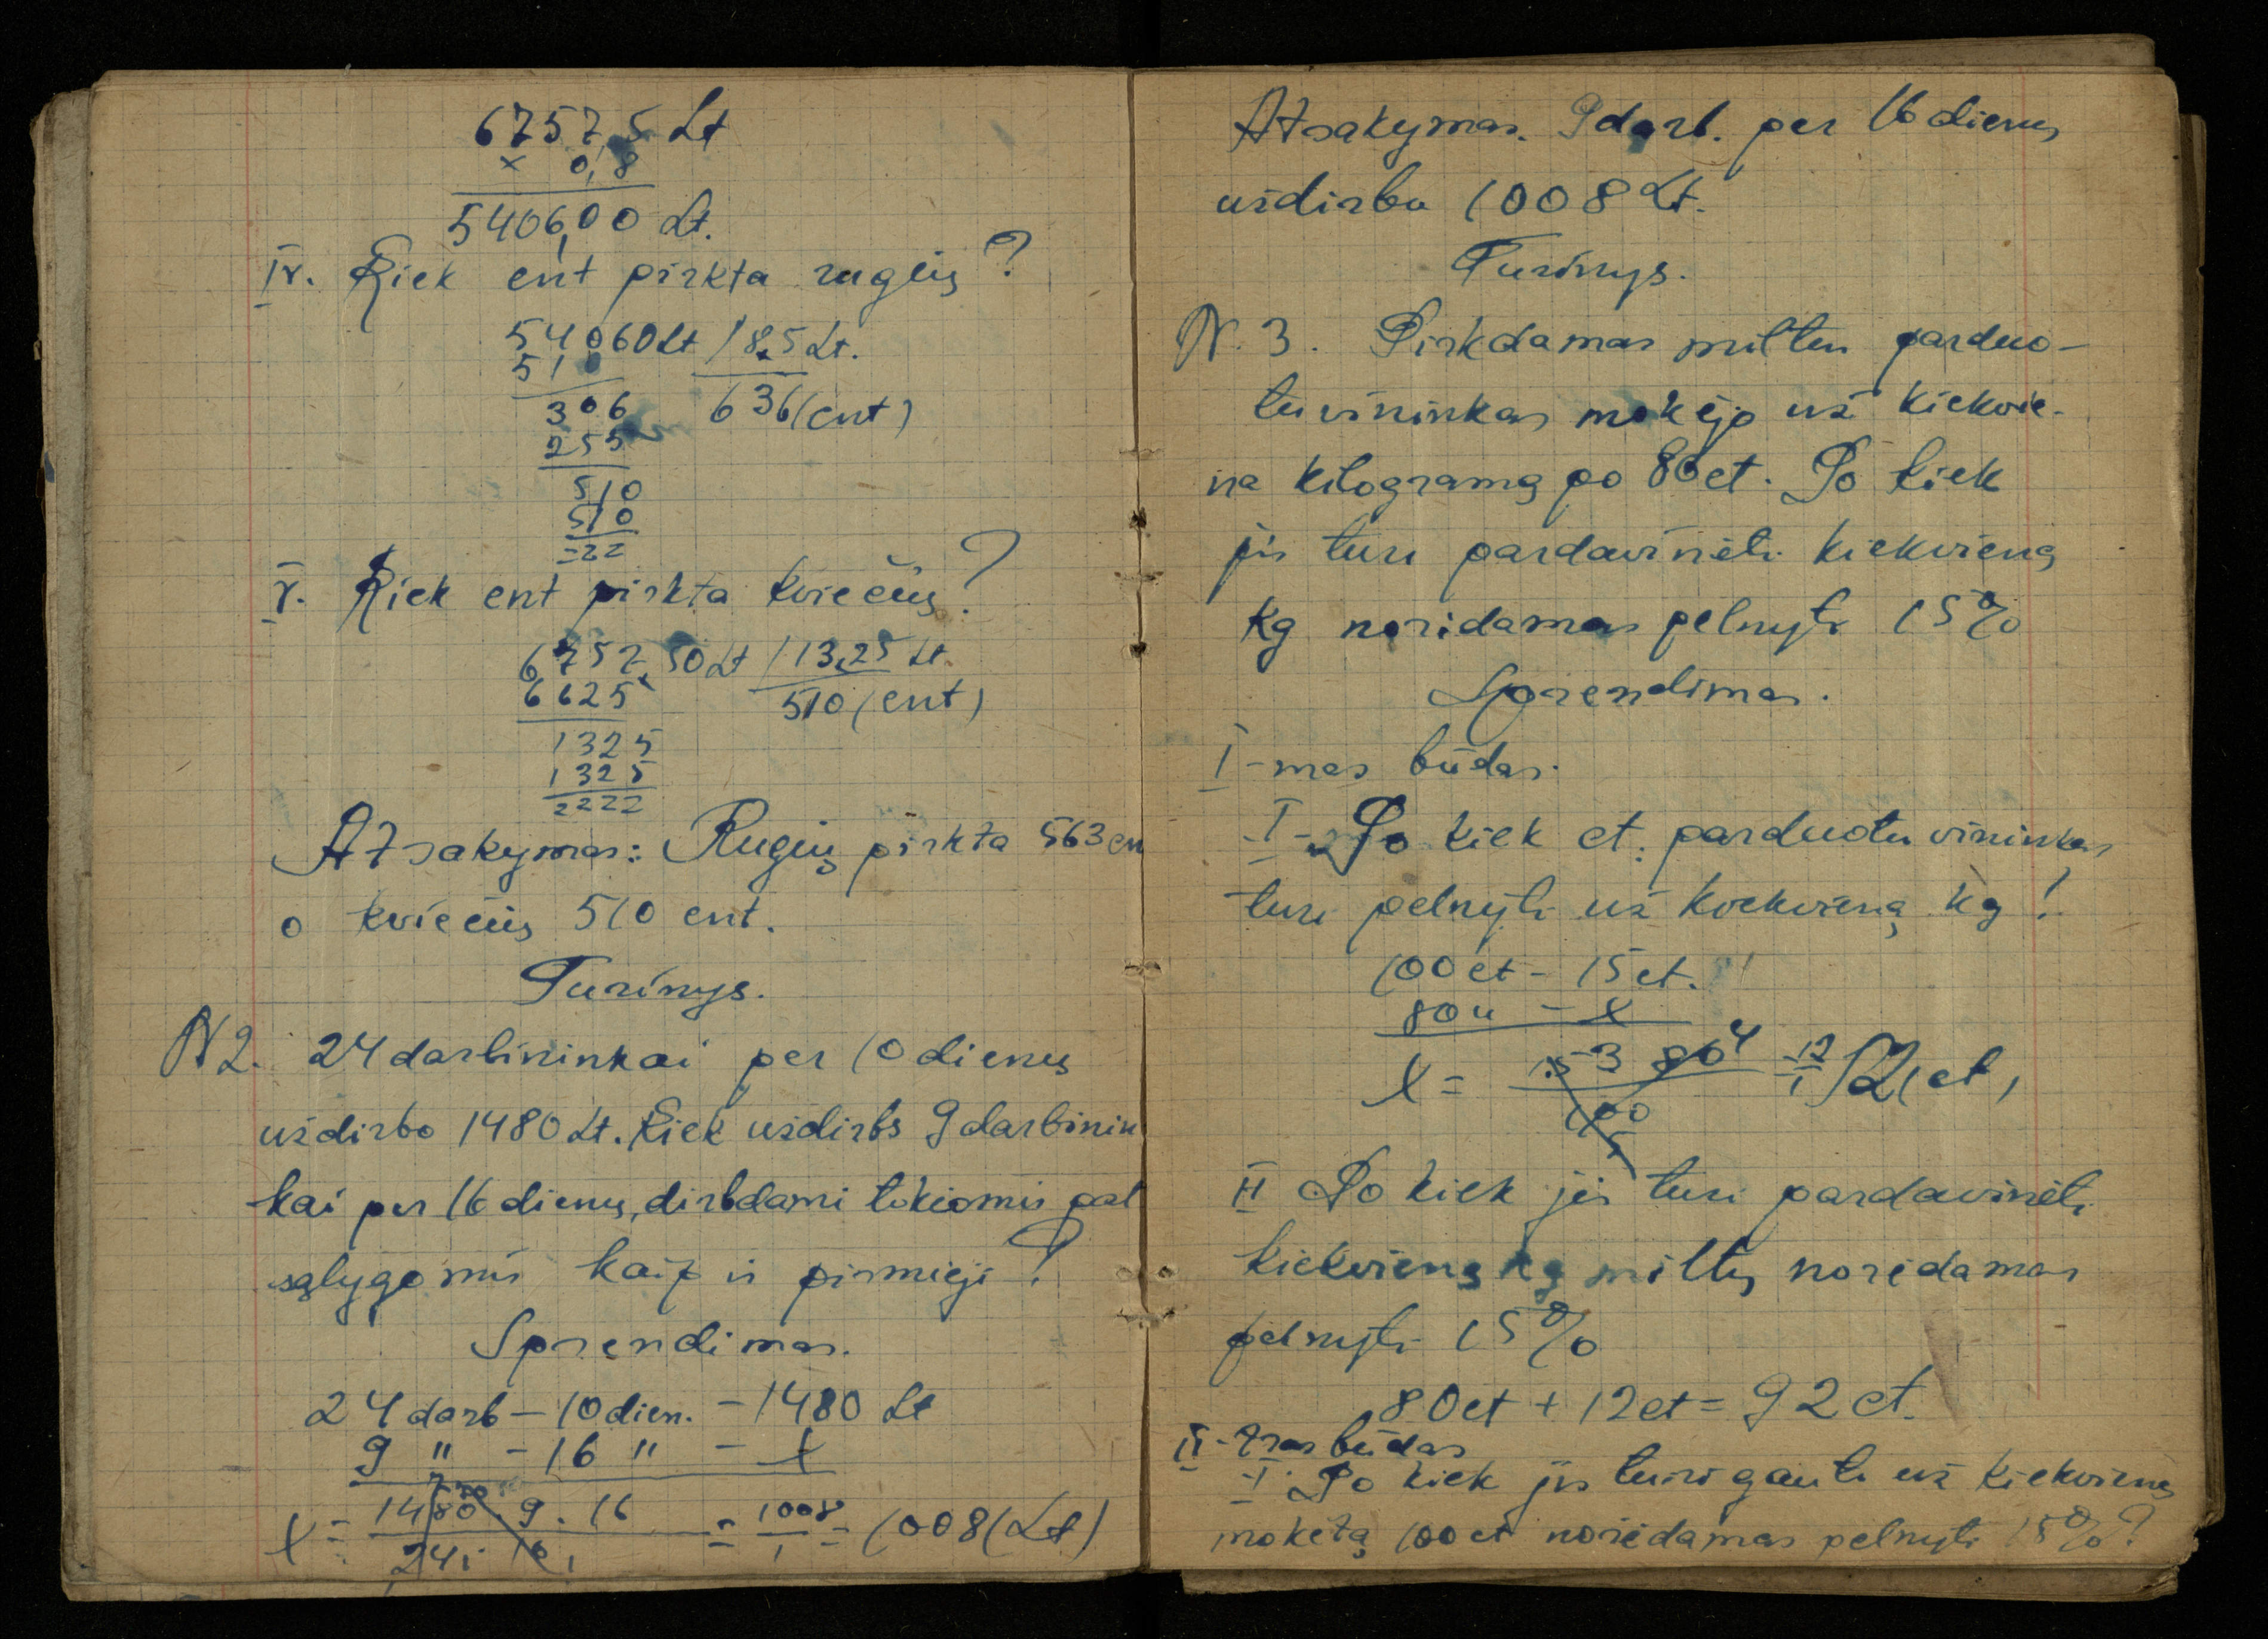 6757,5 Lt
× 0,8
5406,00 Lt.
IV. Kiek cnt pirkta rugių?
54060Lt / 8,5 Lt.
510
306 636(cnt)
255
510
510
=22
V. Kiek cnt pirkta kviečių?
6757,50Lt / 13,25 Lt
6625 510(cnt)
1325
1325
2222
Atsakymas: Rugių pirkta 563 cn
o kviečių 510 cnt.
Turinys.
N2. 24 darbininkai per 10 dienų
uždirbo 1480 Lt. Kiek uždirbs 9 darbinin
kai per 16 dienų, dirbdami tokiomis pat
sąlygomis kaip ir pirmieji?
Sprendimas.
24 darb – 10 dien. – 1480 Lt
9 " – 16 " – x
x = 1480 . 9 . 16 = 1008 = 1008(Lt)
24 10 1
Atsakymas. 9 darb. per 16 dienų
uždirbu 1008 Lt.
Turinys.
N. 3. Pirkdamas miltu parduo-
tuvininkas mokėjo už kiekvie-
na kilogramą po 80 ct. Po kiek
jis turi pardavinėti kiekvieną
kg noridamas pelnyti 15%
Sprendimas.
I-mas būdas.
I- Po kiek ct. parduotuvininkas
turi pelnyti už kiekvieną kg?
100 ct – 15 ct.
80 " – x
x = 15 3 80 4 = 12 12(ct)
100 1
5
II Po kiek jis turi pardavinėti
kiekvieną kg miltų norėdamas
pelnyti 15%
80ct + 12ct = 92 ct.
II-ras būdas
I. Po kiek jis turi gauti už kiekvieną
moketą 100 ct norėdamas pelnyti 15%?